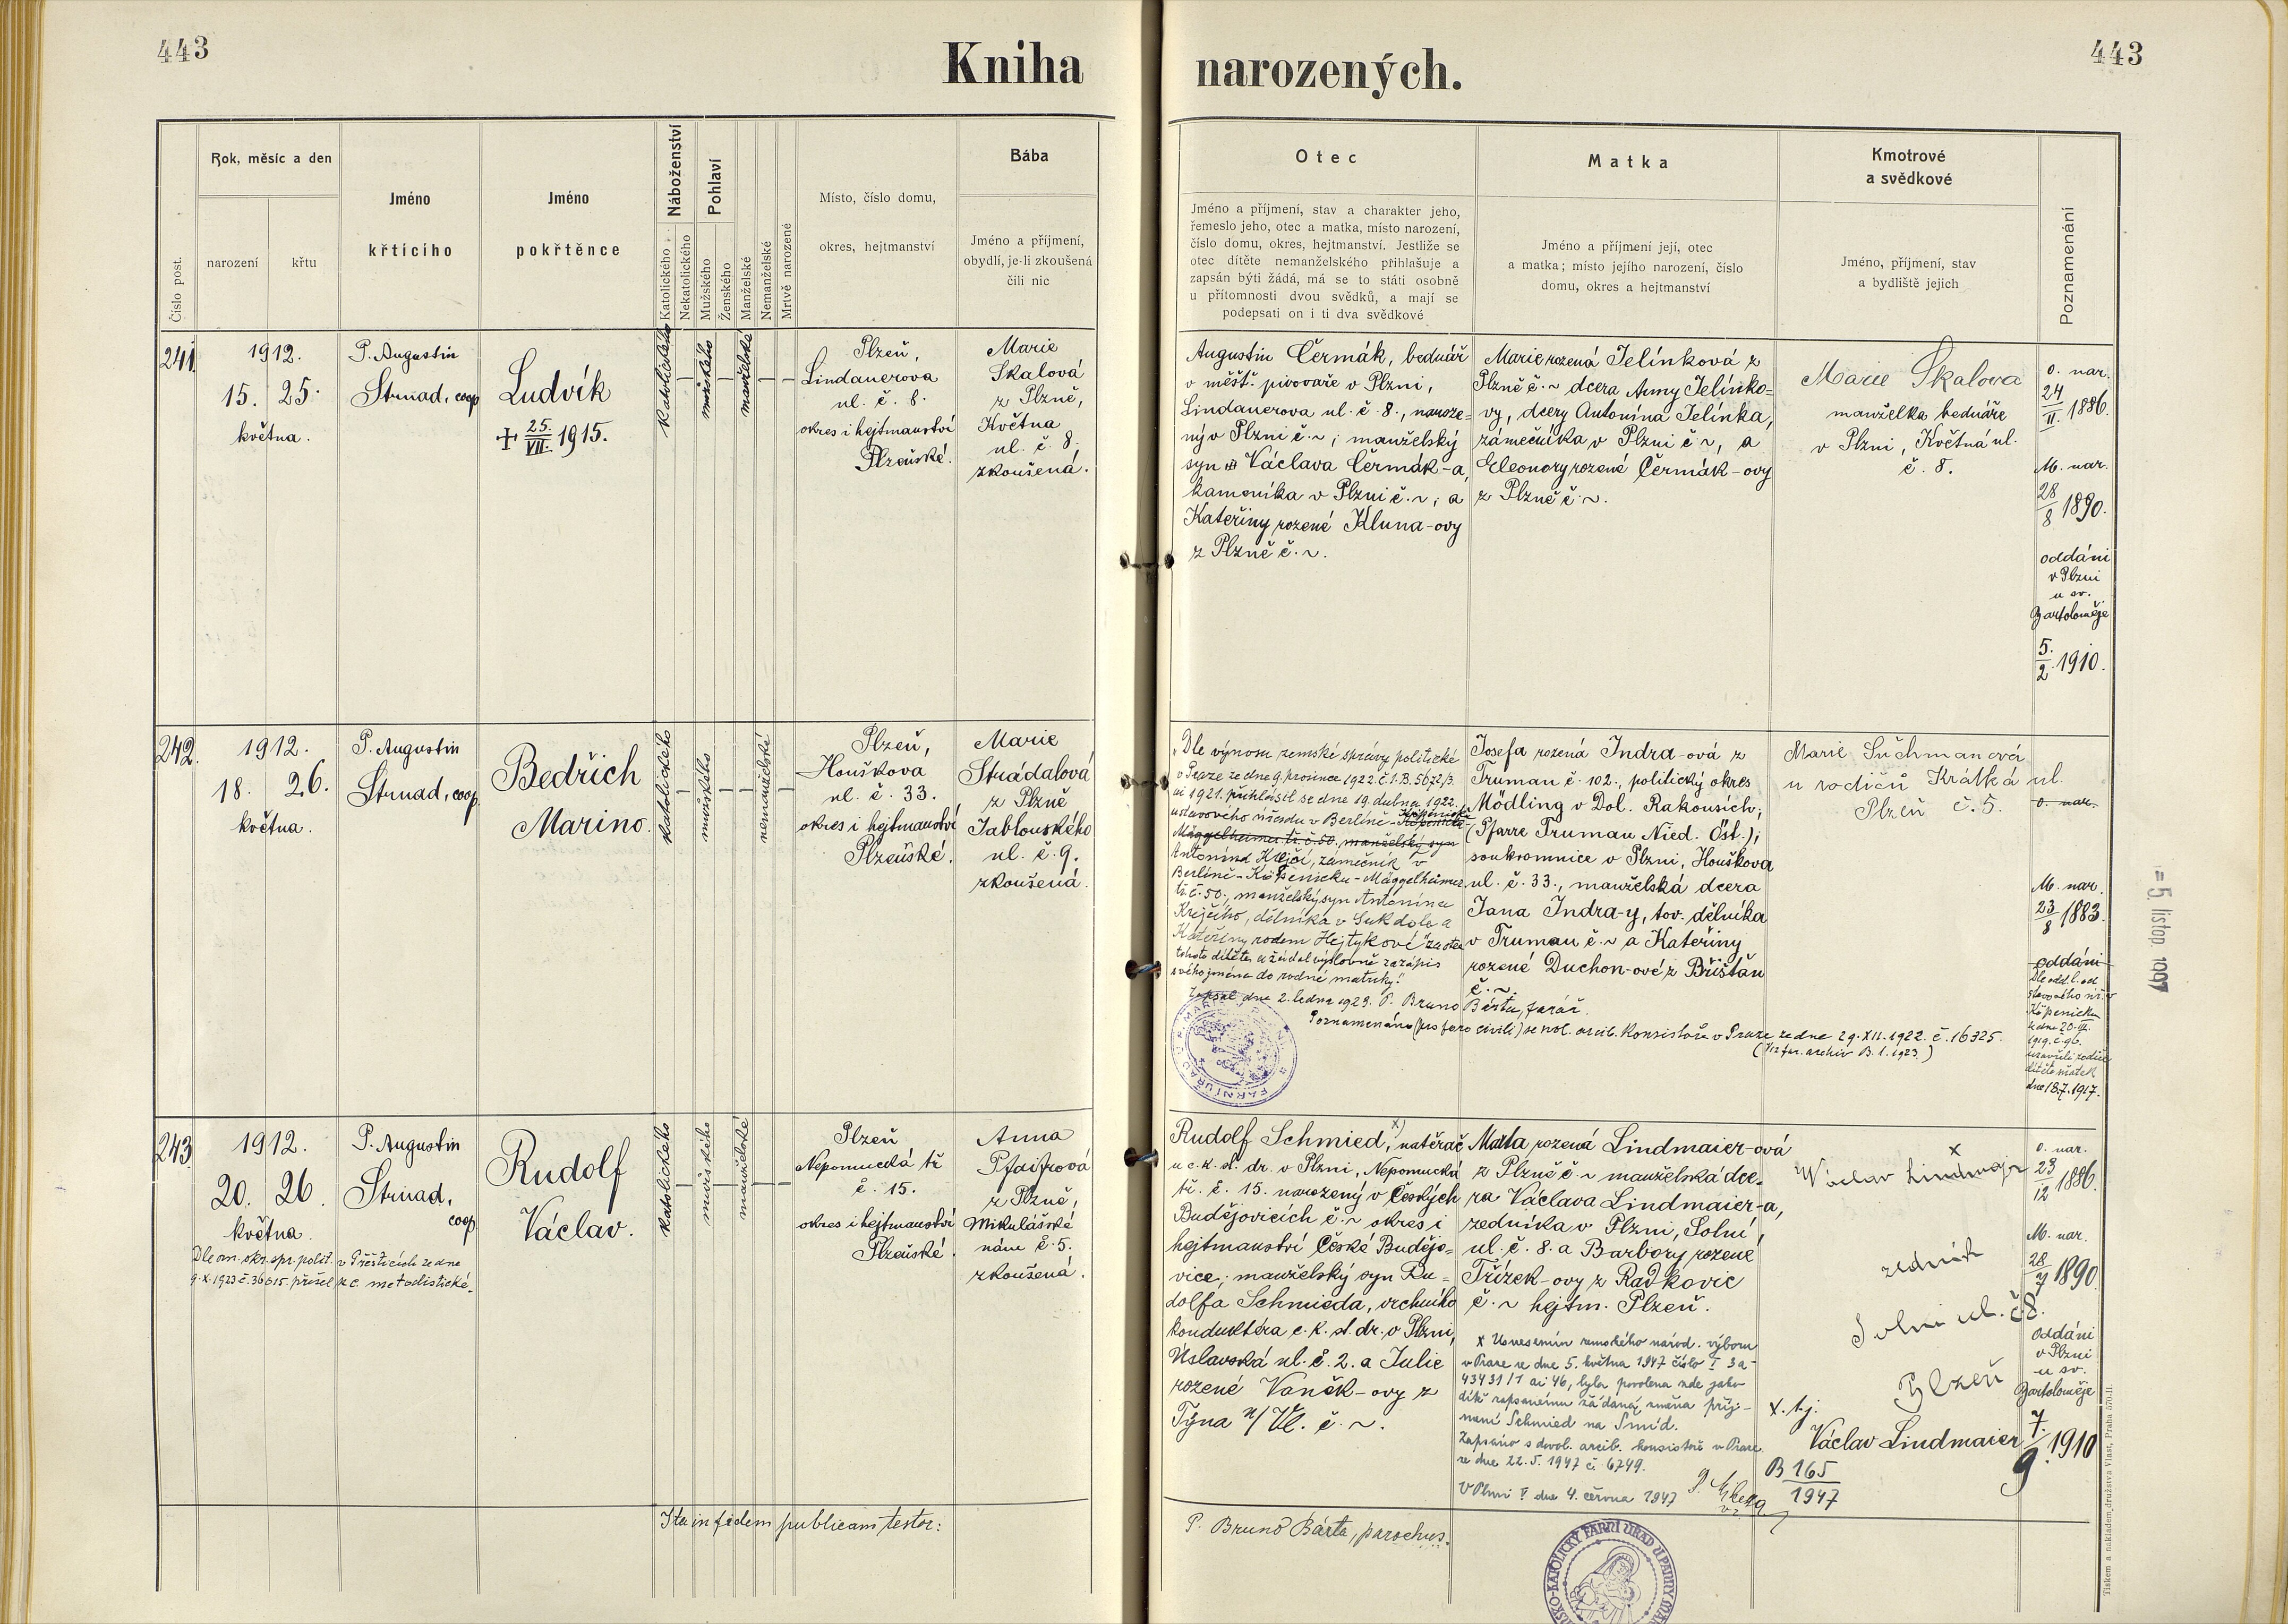 443
Kniha narozených.
443
Číslo post.
Rok, měsíc a den
narození
křtu
Jméno
křticího
Jméno
pokřtěnce
Náboženství
Katolického
Nekatolického
Pohlaví
Mužského
Ženského
Manželské
Nemanželské
Mrtvě narozené
Místo, číslo domu,
okres, hejtmanství
Bába
Jméno a příjmení,
obydlí, je-li zkoušená
čili nic
Otec
Jméno a příjmení, stav a charakter jeho,
řemeslo jeho, otec a matka, místo narození,
číslo domu, okres, hejtmanství. Jestliže se
otec dítěte nemanželského přihlašuje a
zapsán býti žádá, má se to státi osobně
u přítomnosti dvou svědků, a mají se
podepsati on i ti dva svědkové
Matka
Jméno a příjmení její, otec
a matka; místo jejího narození, číslo
domu, okres a hejtmanství
Kmotrové
a svědkové
Jméno, příjmení, stav
a bydliště jejich
Poznamenání
241
1912.
15. 25.
května.
P. Augustin
Strnad, coop
Ludvík
+ 25./VII. 1915.
katolického
mužského
manželské
Plzeň,
Lindauerova
ul. č. 8.
okres i hejtmanství
Plzeňské.
Marie
Skalová
z Plzně,
Května
ul. č. 8.
zkoušená.
Augustin Čermák, bednář
v měšť. pivovaře v Plzni,
Lindauerova ul. č. 8., naroze=
ný v Plzni č. ~, manželský
syn Václava Čermák-a,
kameníka v Plzni č. ~, a
Kateřiny rozené Kluna-ovy
z Plzně č. ~.
Marie rozená Jelínková z
Plzně č. ~ dcera Anny Jelínko=
vy, dcery Antonína Jelínka,
zámečníka v Plzni č ~, a
Eleonory rozené Čermák-ovy
z Plzně č. ~.
Marie Skalova
manželka bednáře
v Plzni, Květná ul.
č. 8.
o. nar.
24/II. 1886.
M. nar.
28/8 1890.
oddáni
v Plzni
u sv.
Bartoloměje
5./2. 1910.
242.
1912.
18. 26.
května.
P. Augustin
Strnad, coop.
Bedřich
Marino.
katolického
mužského
nemanželské
Plzeň,
Houškova
ul. č. 33.
okres i hejtmanství
Plzeňské.
Marie
Strádalová
z Plzně
Jablonského
ul. č. 9.
zkoušená.
"Dle výnosu zemské správy politické
v Praze ze dne 9. prosince 1922. č. 1. B. 5672/3.
ai 1921. přihlásil se dne 19. dubna 1922.
u stavového úřadu v Berlíně-Köpenicku
Müggelheimer tř. č. 50., manželský syn
Antonína Krejčí, zámečník v
Berlíně-Köpenicku-Müggelheimer
tř. č. 50., manželský syn Antonína
Krejčího, dělníka v Sukdole a
Kateřiny rodem Hejtykové za otce
tohoto dítěte a žádal výslovně za zápis
svého jména do rodné matriky."
Zapsal dne 2. ledna 1923. P. Bruno Bárta, farář.
Poznamenáno (pro foro civili) se svol. arcib. Konsistoře v Praze ze dne 29. XII. 1922. č. 16325.
(Viz far. archiv B. 1. 1923.)
Josefa rozená Indra-ová z
Truman č. 102., politický okres
Mödling v Dol. Rakousích,
(Pfarre Truman Nied. Öst.),
soukromnice v Plzni, Houškova
ul. č. 33., manželská dcera
Jana Indra-y, tov. dělníka
v Truman č. ~ a Kateřiny
rozené Duchon-ové z Břišťan
č. ~.
Marie Suchmanová
u rodičů Krátká ul.
Plzeň č. 5.
o. nar.
M. nar.
23/8 1883.
oddáni
Dle odd. l. od
stavového úř. v
Köpenicku
ze dne 20. VI.
1919. č. 96.
uzavřeli rodiče
dítěte sňatek
dne 18.7.1917.
= 5. listop. 1997
243
1912.
20. 26.
května.
Dle vn. okr. spr. polit. v Přešticích ze dne
9. X. 1923 č. 36615. přišel k c. metodistické.
P. Augustin
Strnad,
coop.
Rudolf
Václav.
katolického
mužského
manželské
Plzeň
Nepomucká tř
č. 15.
okres i hejtmanství
Plzeňské.
Anna
Pfaifrová
z Plzně,
Mikulášské
nám č. 5.
zkoušená.
Rudolf Schmied, x) natěrač
u c. k. st. dr. v Plzni, Nepomucká
tř. č. 15. narozený v Českých
Budějovicích č. ~ okres i
hejtmanství České Budějo=
vice, manželský syn Ru=
dolfa Schmieda, vrchního
konduktéra c. k. st. dr. v Plzni,
Úslavská ul. č. 2. a Julie
rozené Vaněk-ovy z
Týna n/Vl. č. ~.
Marta rozená Lindmaier-ová
z Plzně č. ~ manželská dce-
ra Václava Lindmaier-a,
zedníka v Plzni, Solní
ul. č. 8. a Barbory rozené
Třízek-ovy z Radkovic
č. ~ hejtm. Plzeň.
x Usnesením zemského národ. výboru
v Praze ze dne 5. května 1947 číslo I 3a-
43431/1 ai 46, byla povolena zde jako
dítě zapsanému žádaná změna příj-
mení Schmied na Šmíd.
Zapsáno s dovol. arcib. konsistoře v Praze
ze dne 22. 5. 1947 č. 6749.
V Plzni I dne 4. června 1947
Václav Lindmajer x
zedník
Solní ul. č. 8.
Plzeň
x. tj.
Václav Lindmaier
B 165/1947
o. nar.
23/12 1886.
M. nar.
28/7 1890
oddáni
v Plzni
u sv.
Bartoloměje
7./9. 1910
Ita in fidem publicam testor:
P. Bruno Bárta, parochus.
Tiskem a nakladem družstva Vlast, Praha 570-II